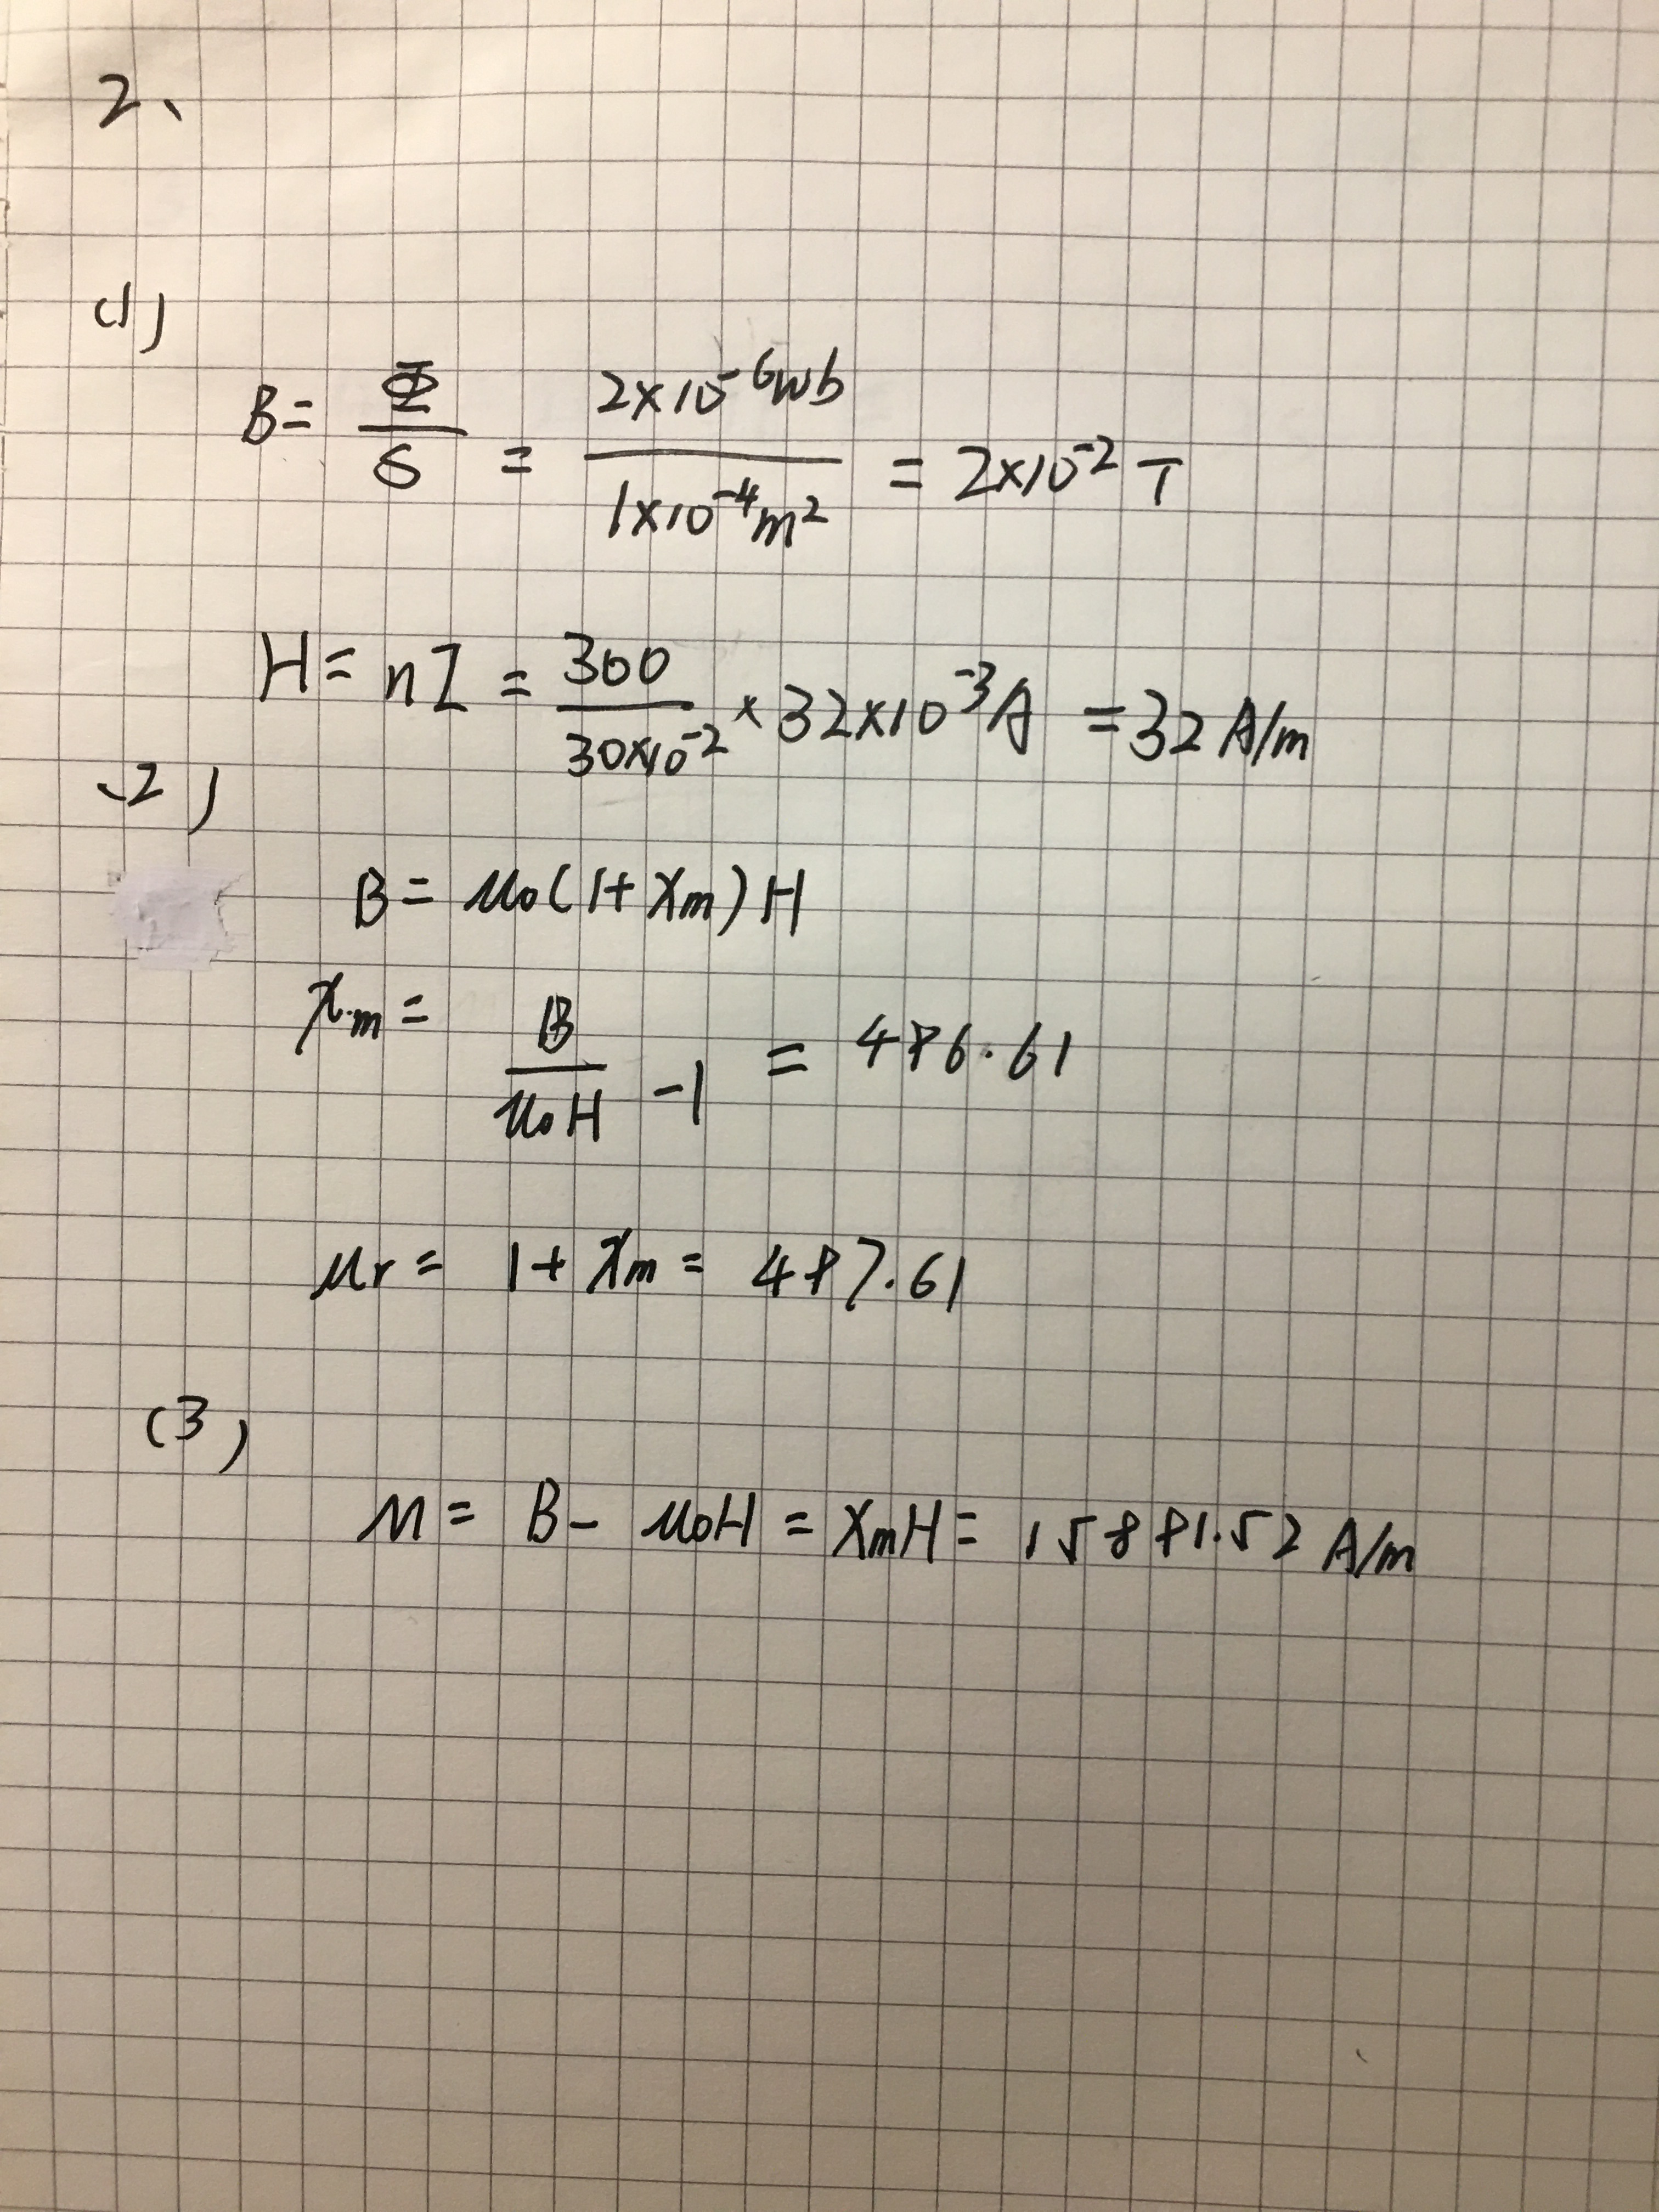 2、
(1)
B = Φ/S = 2×10⁻⁶wb / 1×10⁻⁴m² = 2×10⁻² T
H = nI = 300 / 30×10⁻² × 32×10⁻³A = 32 A/m
(2)
B = μ₀(1+χm)H
χm = B/μ₀H - 1 = 486.61
μr = 1+χm = 487.61
(3)
M = B - μ₀H = χmH = 15881.52 A/m